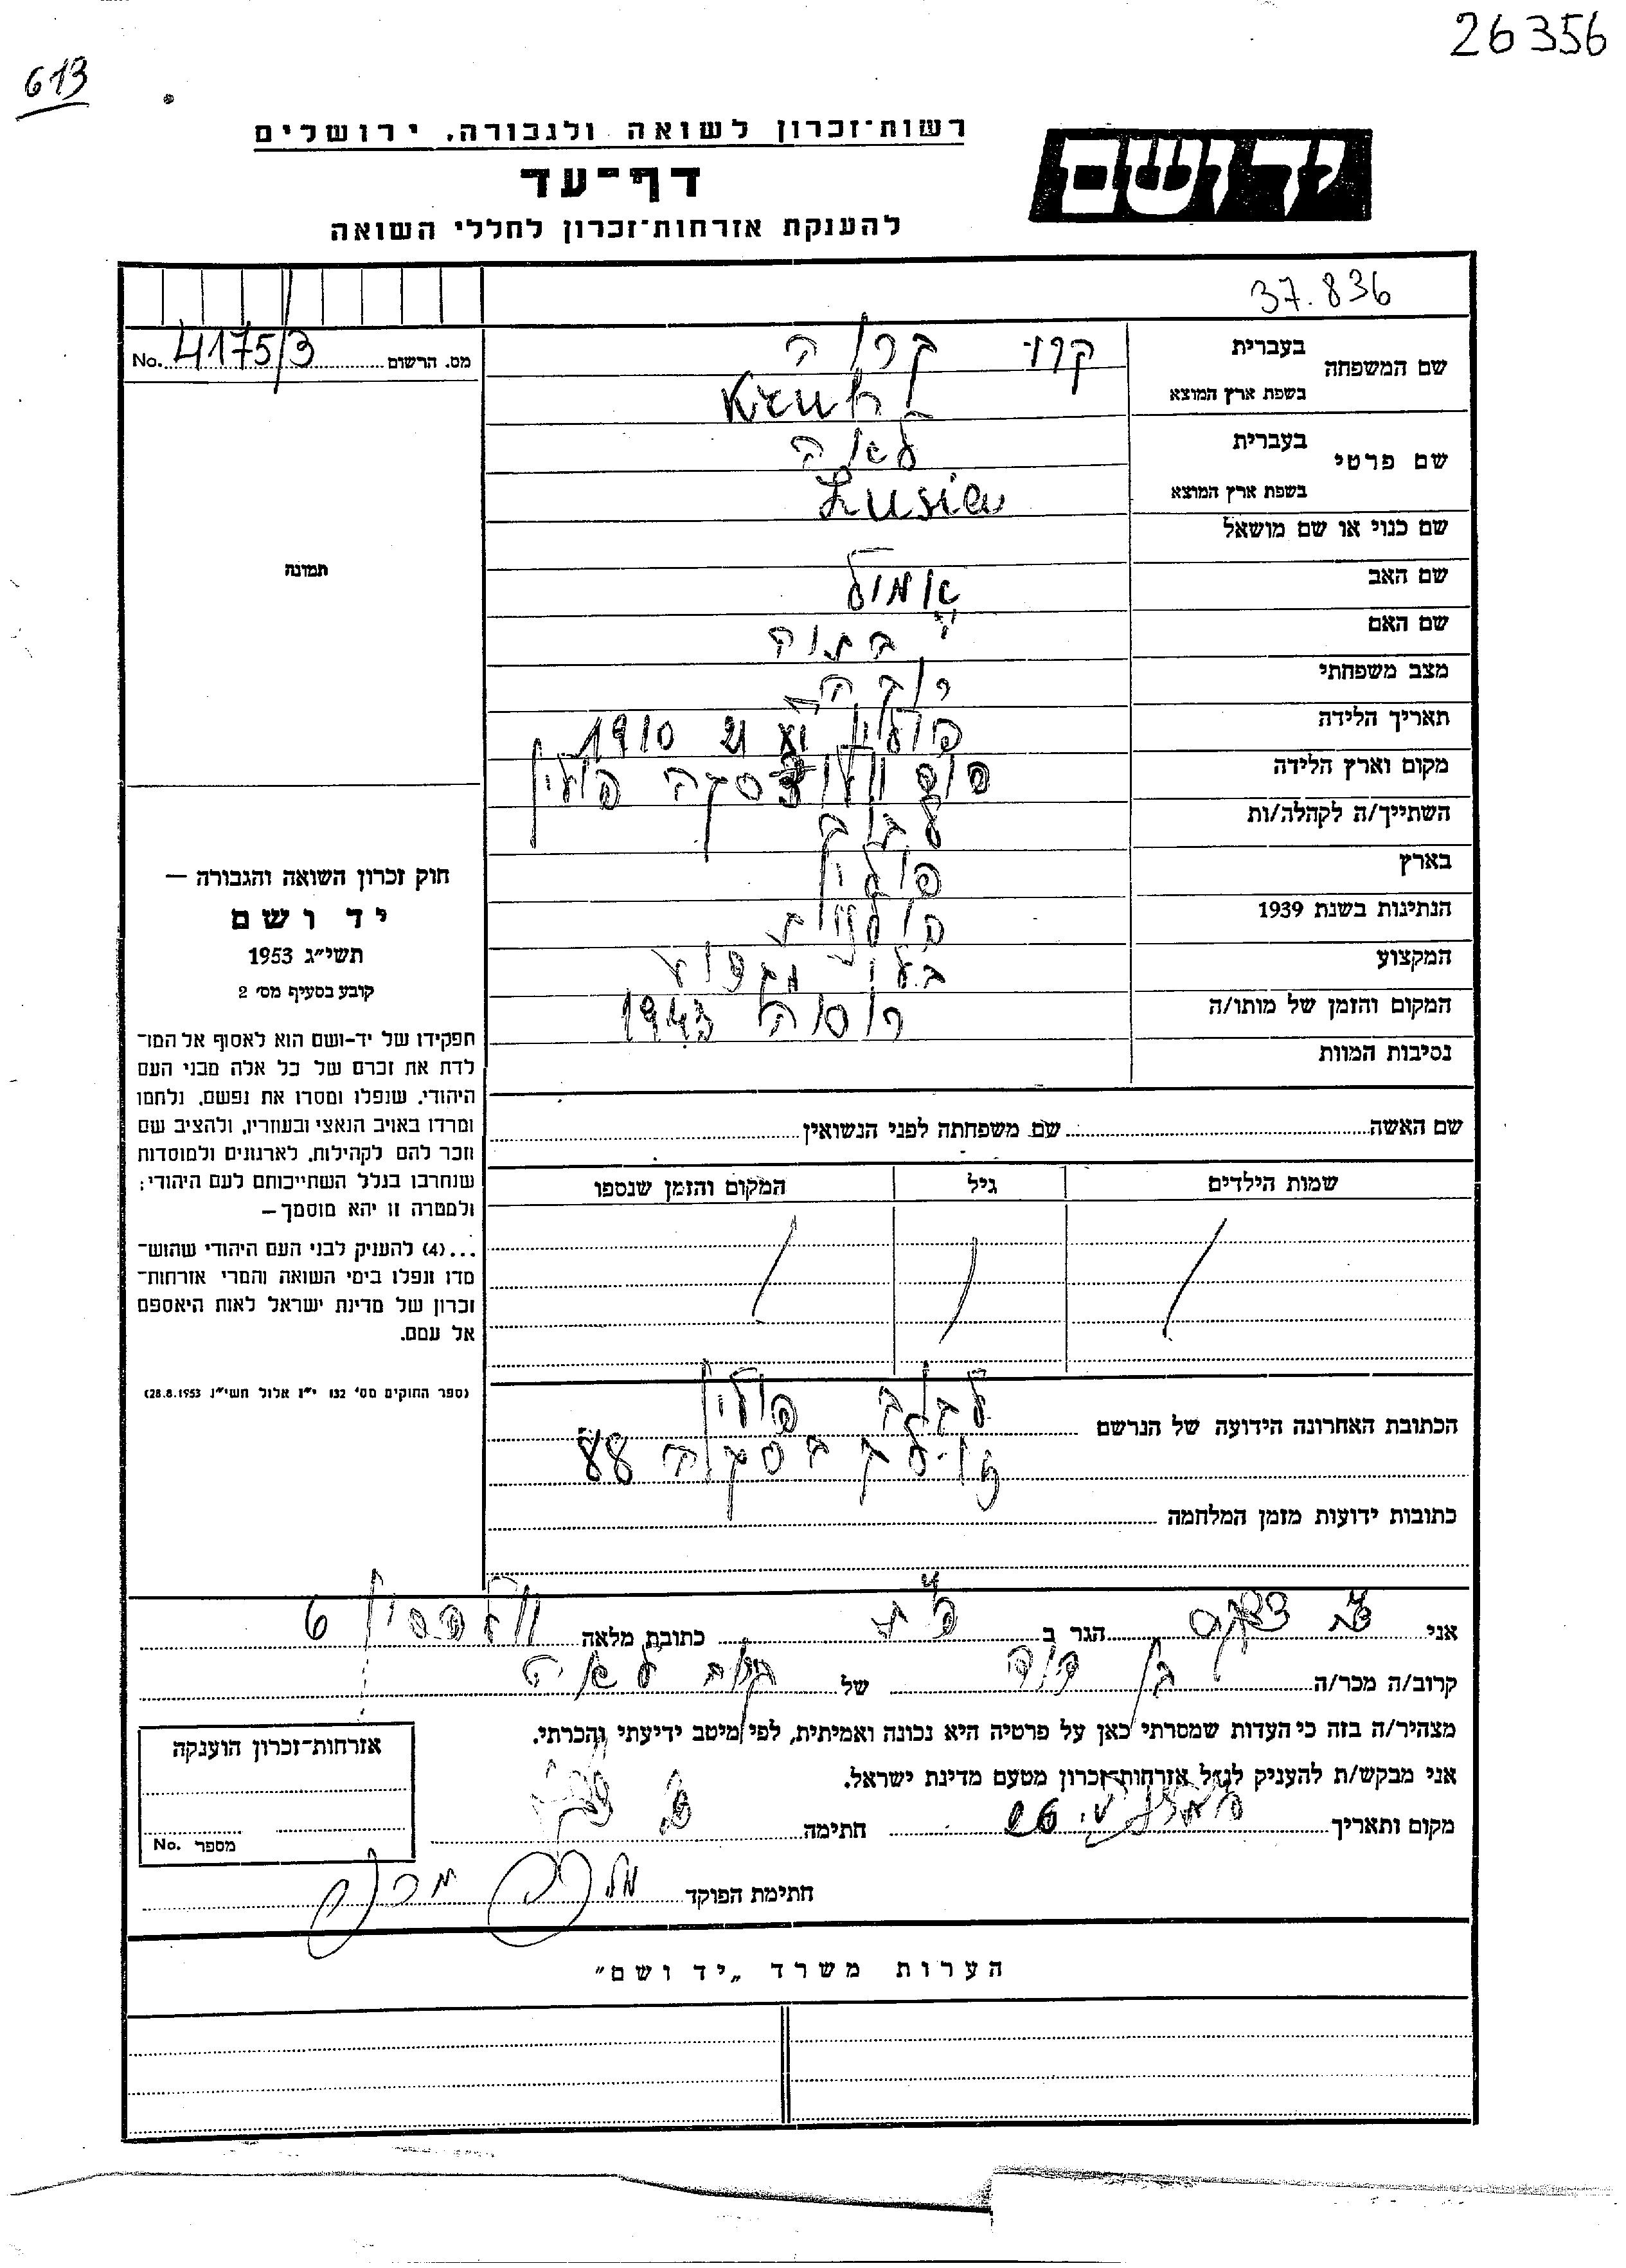 26356
613
יד ושם
רשות־זכרון לשואה ולגבורה, ירושלים
דף־עד
להענקת אזרחות־זכרון לחללי השואה
37.836
מס. הרשום 4175/3 No.
שם המשפחה
בעברית
בשפת ארץ המוצא Kruk
שם פרטי
בעברית לאה
בשפת ארץ המוצא Lusia
שם כנוי או שם מושאל
שם האב
שם האם
מצב משפחתי
תאריך הלידה 1910
מקום וארץ הלידה פולין
השתייך/ה לקהלה/ות לבוב
בארץ פולין
הנתינות בשנת 1939 פולנית
המקצוע
המקום והזמן של מותו/ה 1943
נסיבות המוות
תמונה
חוק זכרון השואה והגבורה —
יד ושם
תשי״ג 1953
קובע בסעיף מס׳ 2
תפקידו של יד-ושם הוא לאסוף אל המו־
לדת את זכרם של כל אלה מבני העם
היהודי, שנפלו ומסרו את נפשם, נלחמו
ומרדו באויב הנאצי ובעוזריו, ולהציב שם
וזכר להם לקהילות, לארגונים ולמוסדות
שנחרבו בגלל השתייכותם לעם היהודי;
ולמטרה זו יהא מוסמך—
...(4) להעניק לבני העם היהודי שהוש־
מדו ונפלו בימי השואה והמרי אזרחות־
זכרון של מדינת ישראל לאות היאספם
אל עמם.
(ספר החוקים מס׳ 132 י״ז אלול תשי״ג 28.8.1953)
שם האשה שם משפחתה לפני הנשואין
שמות הילדים גיל המקום והזמן שנספו
הכתובת האחרונה הידועה של הנרשם לבוב פולין
88
כתובות ידועות מזמן המלחמה
אני הגר ב פ״ת כתובת מלאה 6
קרוב/ה מכר/ה בן דוד של לאה
מצהיר/ה בזה כי העדות שמסרתי כאן על פרטיה היא נכונה ואמיתית, לפי מיטב ידיעתי והכרתי.
אני מבקש/ת להעניק לנ״ל אזרחות־זכרון מטעם מדינת ישראל.
מקום ותאריך חתימה
חתימת הפוקד
אזרחות־זכרון הוענקה
מספר No.
הערות משרד „יד ושם״